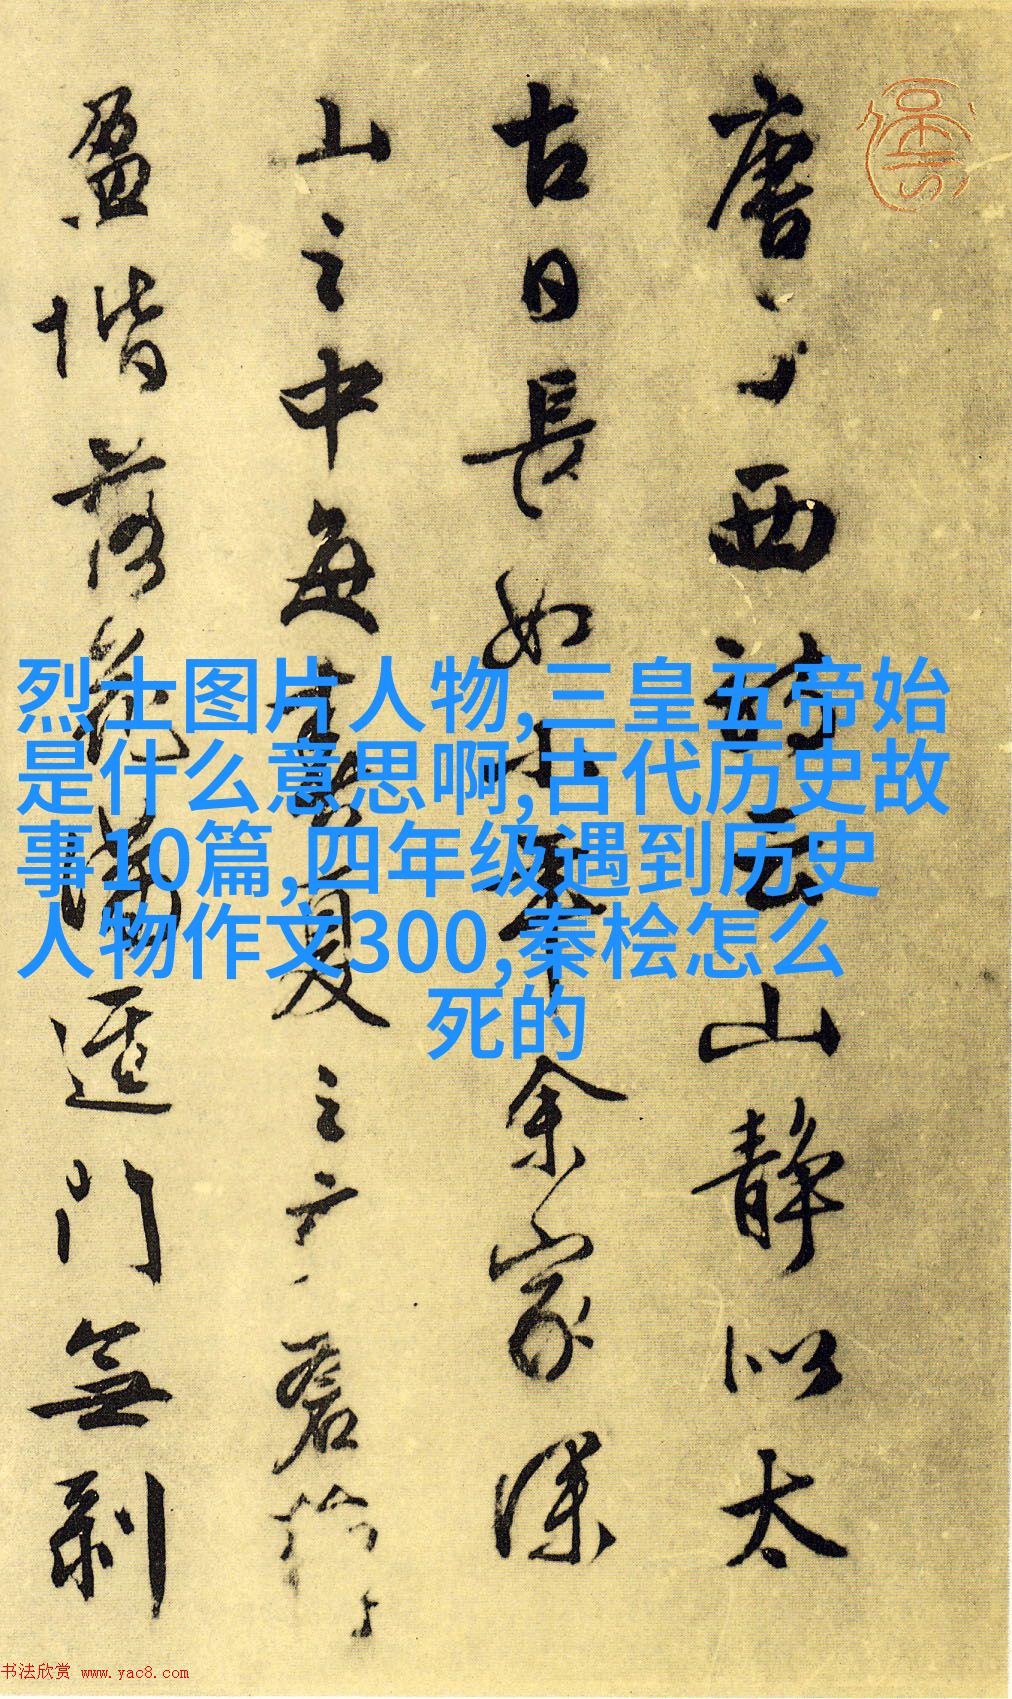 唐子西詩云山静似太
古日長如小年余家深
山之中每春夏之交蒼蘚
盈堦落花滿逕門無剝
烈士图片人物,三皇五帝始
是什么意思啊,古代历史故
事10篇,四年级遇到历史
人物作文300,秦桧怎么
死的
书法欣赏 www.yac8.com